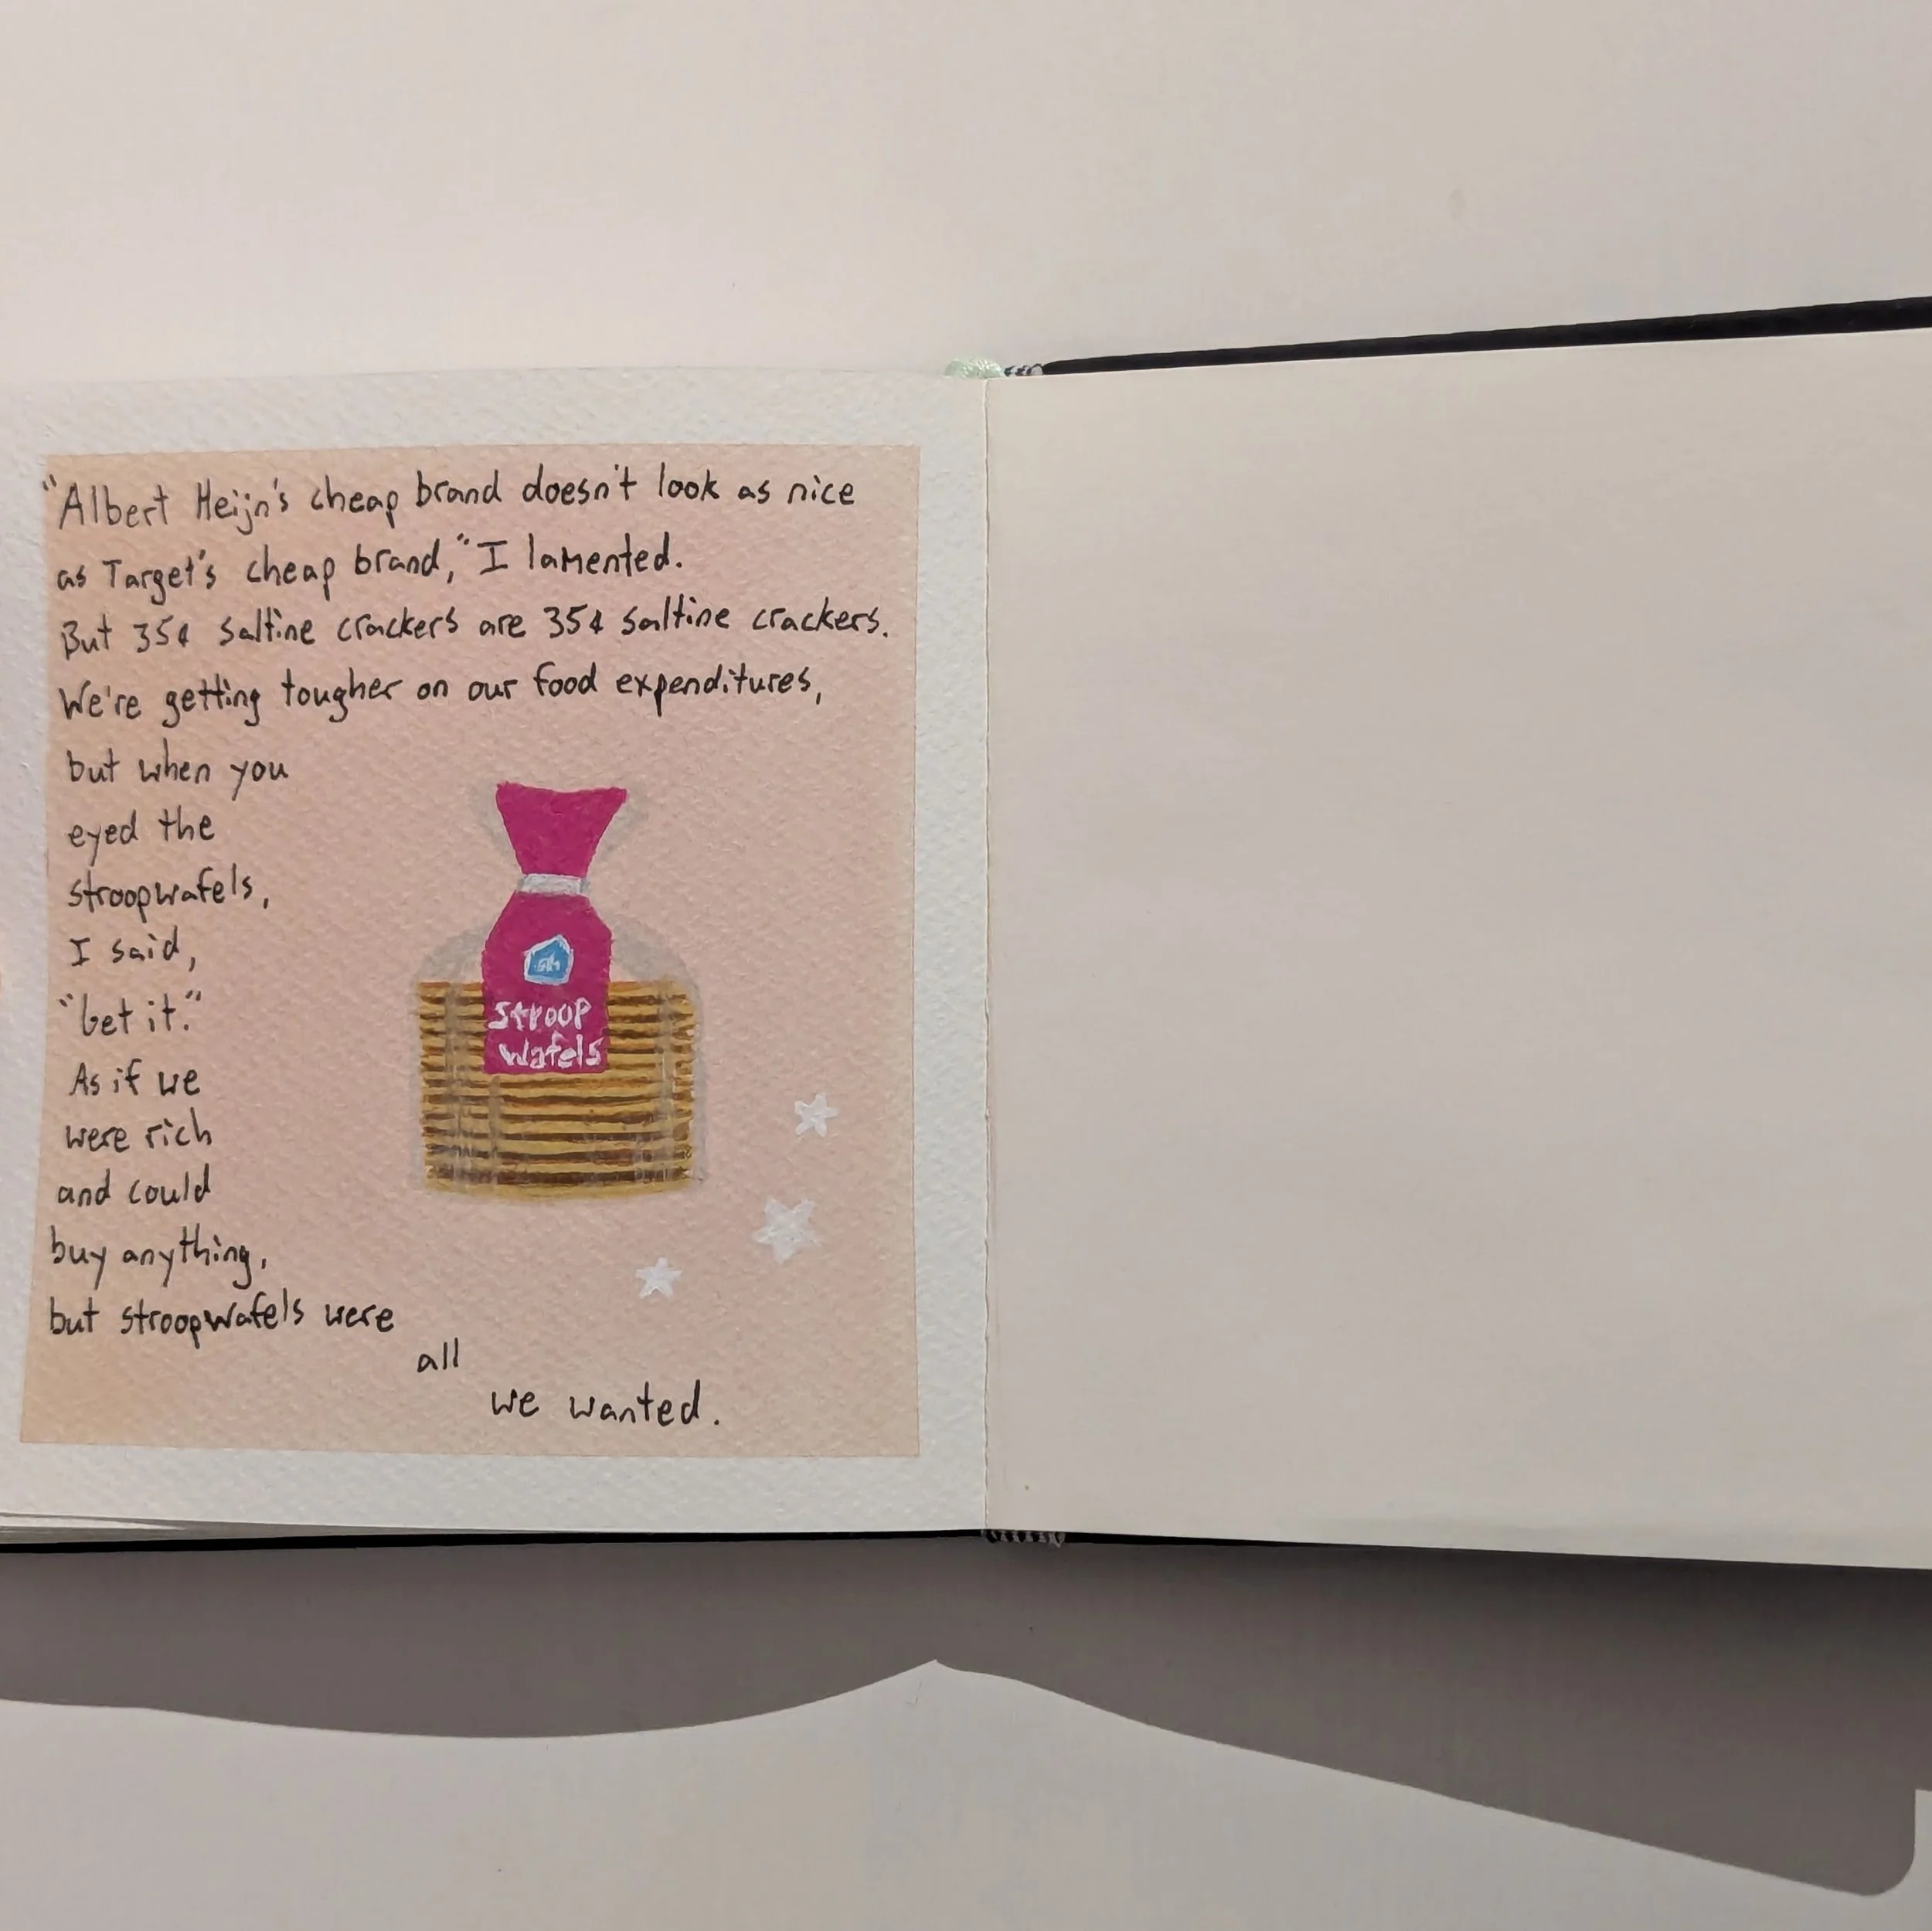 "Albert Heijn's cheap brand doesn't look as nice
as Target's cheap brand," I lamented.
But 35¢ saltine crackers are 35¢ saltine crackers.
We're getting tougher on our food expenditures,
but when you
eyed the
stroopwafels,
I said,
"Get it."
As if we
were rich
and could
buy anything,
but stroopwafels were
all
we wanted.
ah
Stroop
Wafels